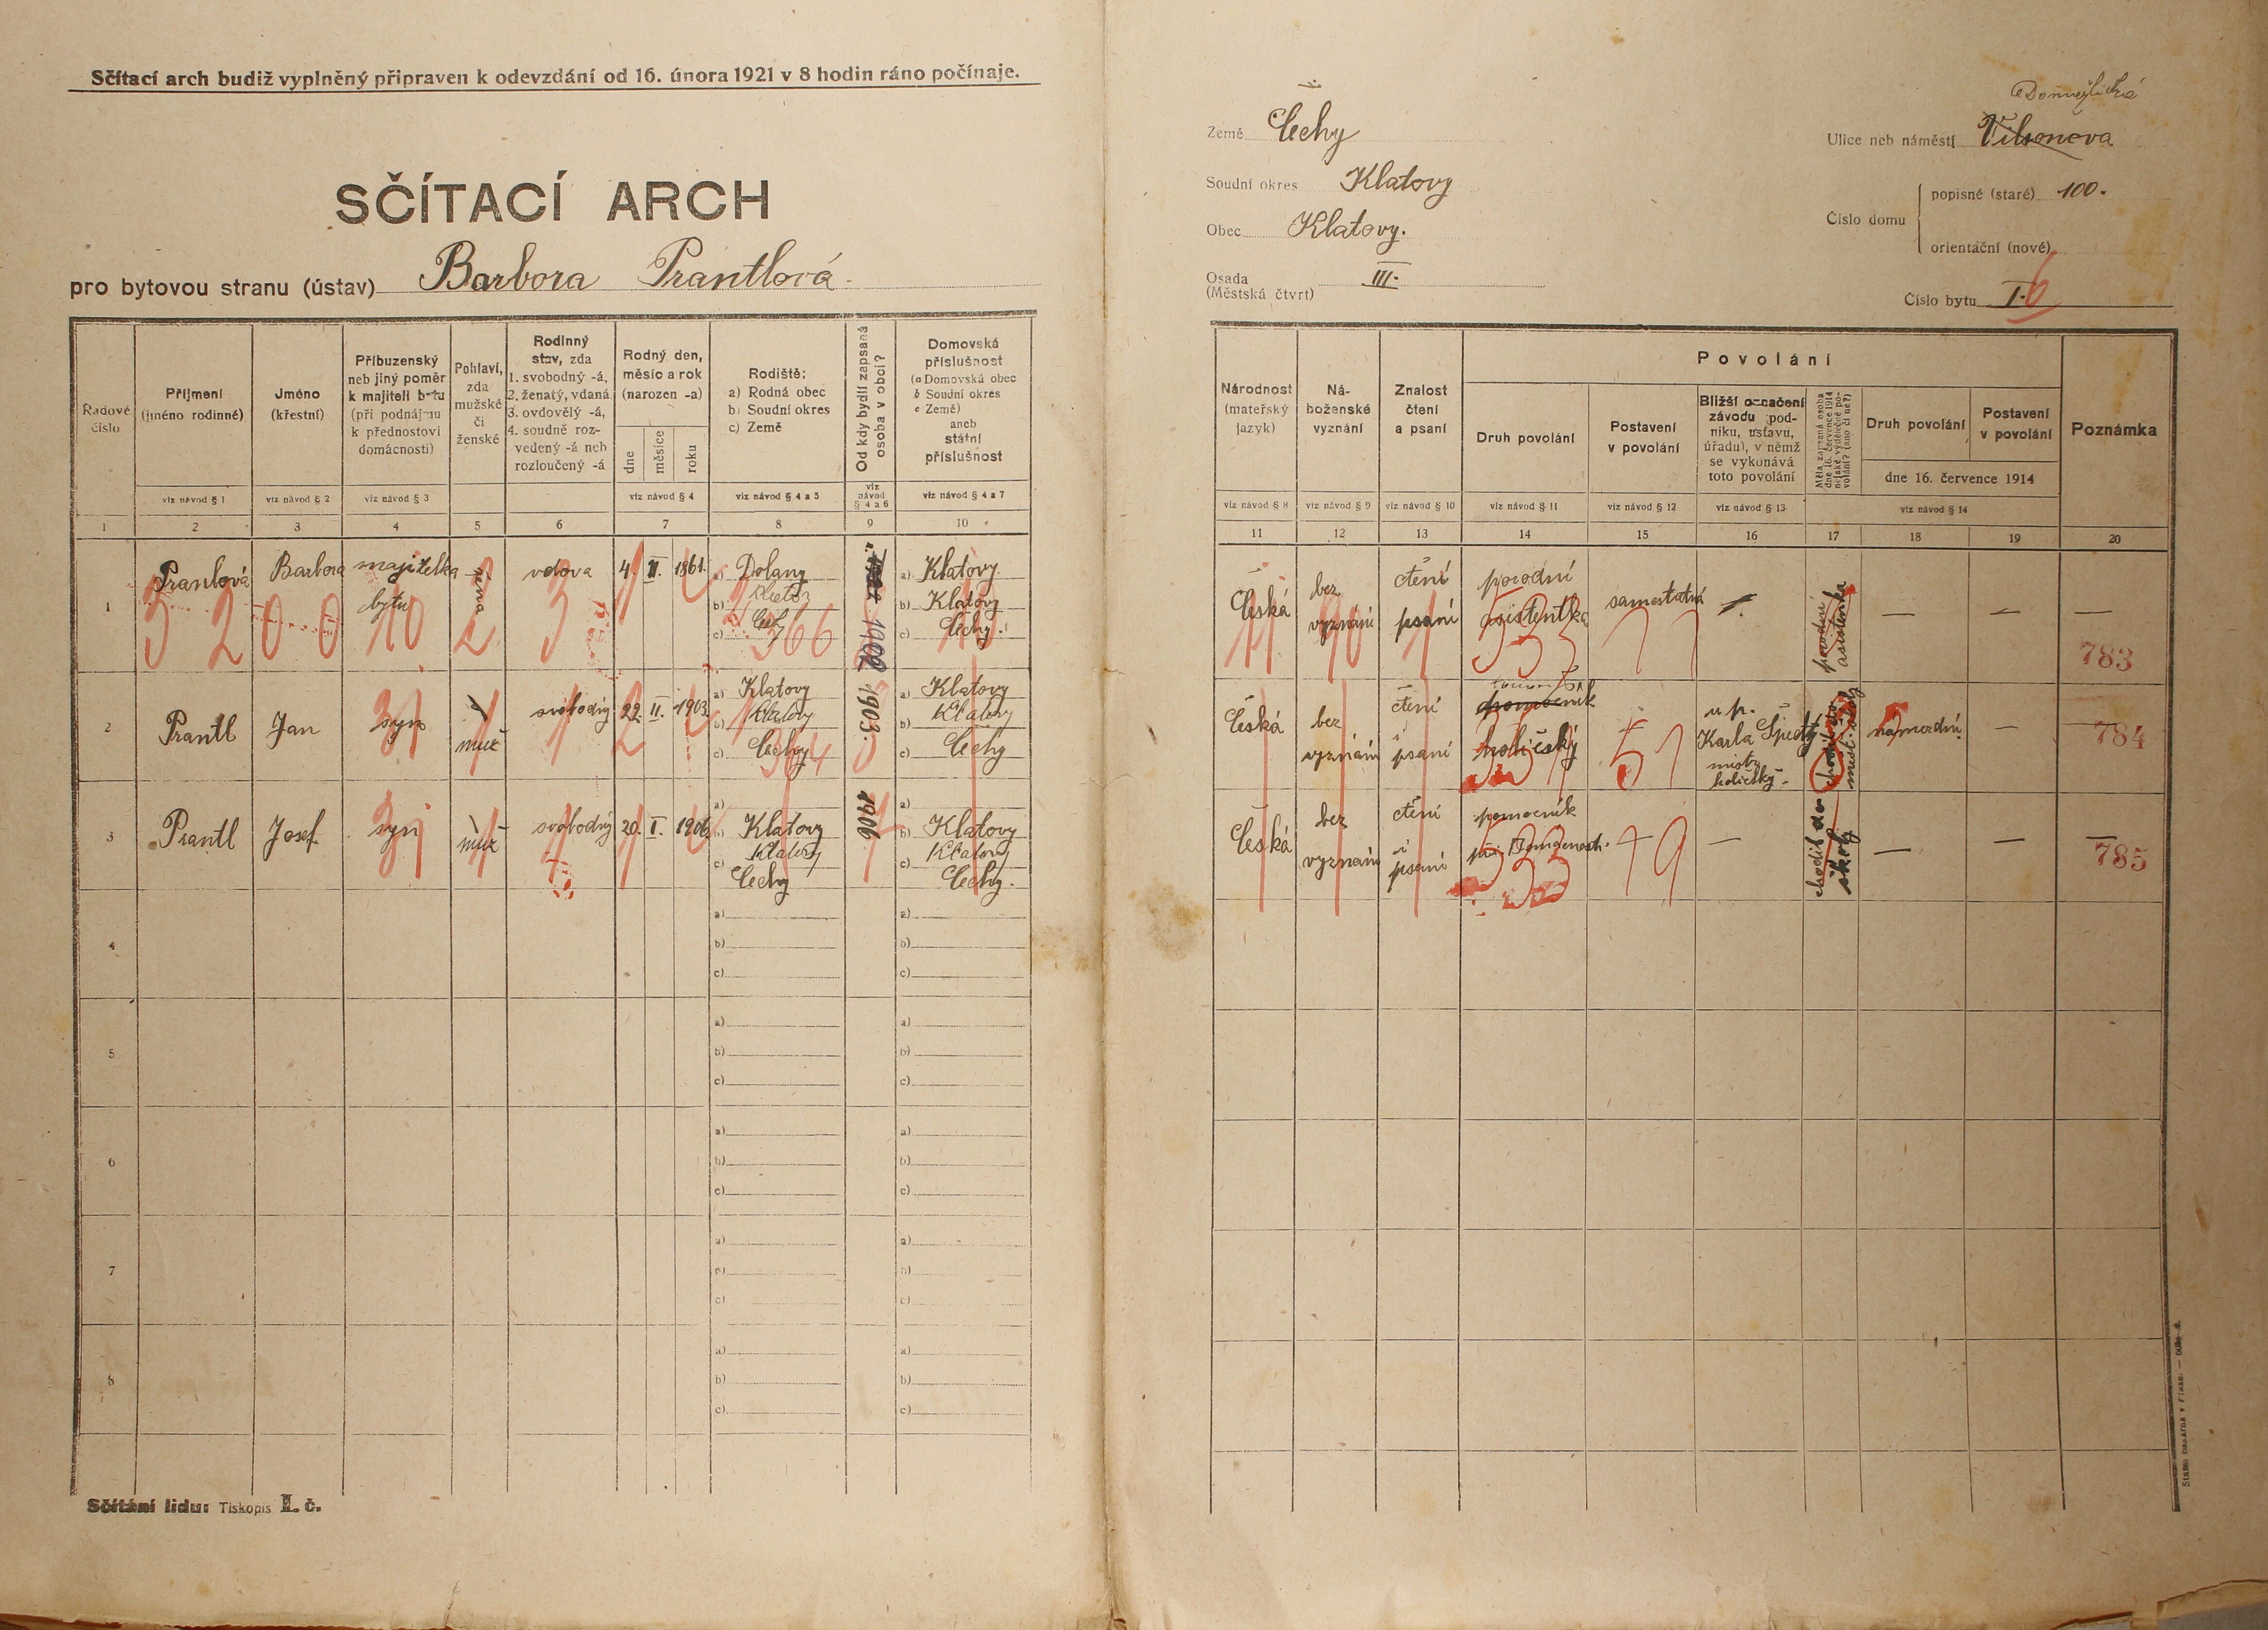 Sčítací arch budiž vyplněný připraven k odevzdání od 16. února 1921 v 8 hodin ráno počínaje.
SČÍTACÍ ARCH
pro bytovou stranu (ústav) Barbora Prantlová.
Země Čechy
Soudní okres Klatovy
Obec Klatovy.
Osada
(Městská čtvrť) III.
Domažlická
Ulice neb náměstí Vilsonova
Číslo domu
popisné (staré) 100.
orientační (nové)
Číslo bytu I. 6
Řadové číslo
Příjmení
(jméno rodinné)
viz návod § 1
Jméno
(křestní)
viz návod § 2
Příbuzenský
neb jiný poměr
k majiteli bytu
(při podnájmu
k přednostovi
domácnosti)
viz návod § 3
Pohlaví,
zda
mužské
či
ženské
Rodinný
stav, zda
1. svobodný -á,
2. ženatý, vdaná
3. ovdovělý -á,
4. soudně roz-
vedený -á neb
rozloučený -á
Rodný den,
měsíc a rok
(narozen -a)
dne
měsíce
roku
viz návod § 4
Rodiště:
a) Rodná obec
b) Soudní okres
c) Země
viz návod § 4 a 5
Od kdy bydlí zapsaná
osoba v obci?
viz
návod
§ 4 a 6
Domovská
příslušnost
(a Domovská obec
b Soudní okres
c Země)
aneb
státní
příslušnost
viz návod § 4 a 7
1 2 3 4 5 6 7 8 9 10
Národnost
(mateřský
jazyk)
viz návod § 8
Ná-
boženské
vyznání
viz návod § 9
Znalost
čtení
a psaní
viz návod § 10
Povolání
Druh povolání
viz návod § 11
Postavení
v povolání
viz návod § 12
Bližší označení
závodu (pod-
niku, ústavu,
úřadu), v němž
se vykonává
toto povolání
viz návod § 13
Měla zapsaná osoba
dne 16. července 1914
nějaké výdělečné po-
volání? (ano či ne?)
Druh povolání
Postavení
v povolání
dne 16. července 1914
viz návod § 14
Poznámka
11 12 13 14 15 16 17 18 19 20
1 Pranlová Barbora majitelka bytu žena vdova 4. II. 1861.
a) Dolany
b)
c)
1902
a) Klatovy
b) Klatovy
c) Čechy.
Česká bez vyznání čtení psaní porodní asistentka samostatná porodní asistentka — — —
783
2 Prantl Jan syn muž svobodný 22. II. 1903.
a) Klatovy
b) Klatovy
c) Čechy
1903.
a) Klatovy
b) Klatovy
c) Čechy
Česká bez vyznání čtení psaní pomocník holičský
u p.
Karla
holičský.
—
784
3 Prantl Josef syn muž svobodný 20. I. 1906
a)
b) Klatovy
Klatovy
c) Čechy
1906.
a)
b) Klatovy
c) Klatovy
Čechy.
Česká bez vyznání čtení psaní pomocník při — chodil do školy — — —
785
4 a) b) c) a) b) c)
5 a) b) c) a) b) c)
6 a) b) c) a) b) c)
7 a) b) c) a) b) c)
8 a) b) c) a) b) c)
Sčítání lidu: Tiskopis II. č.